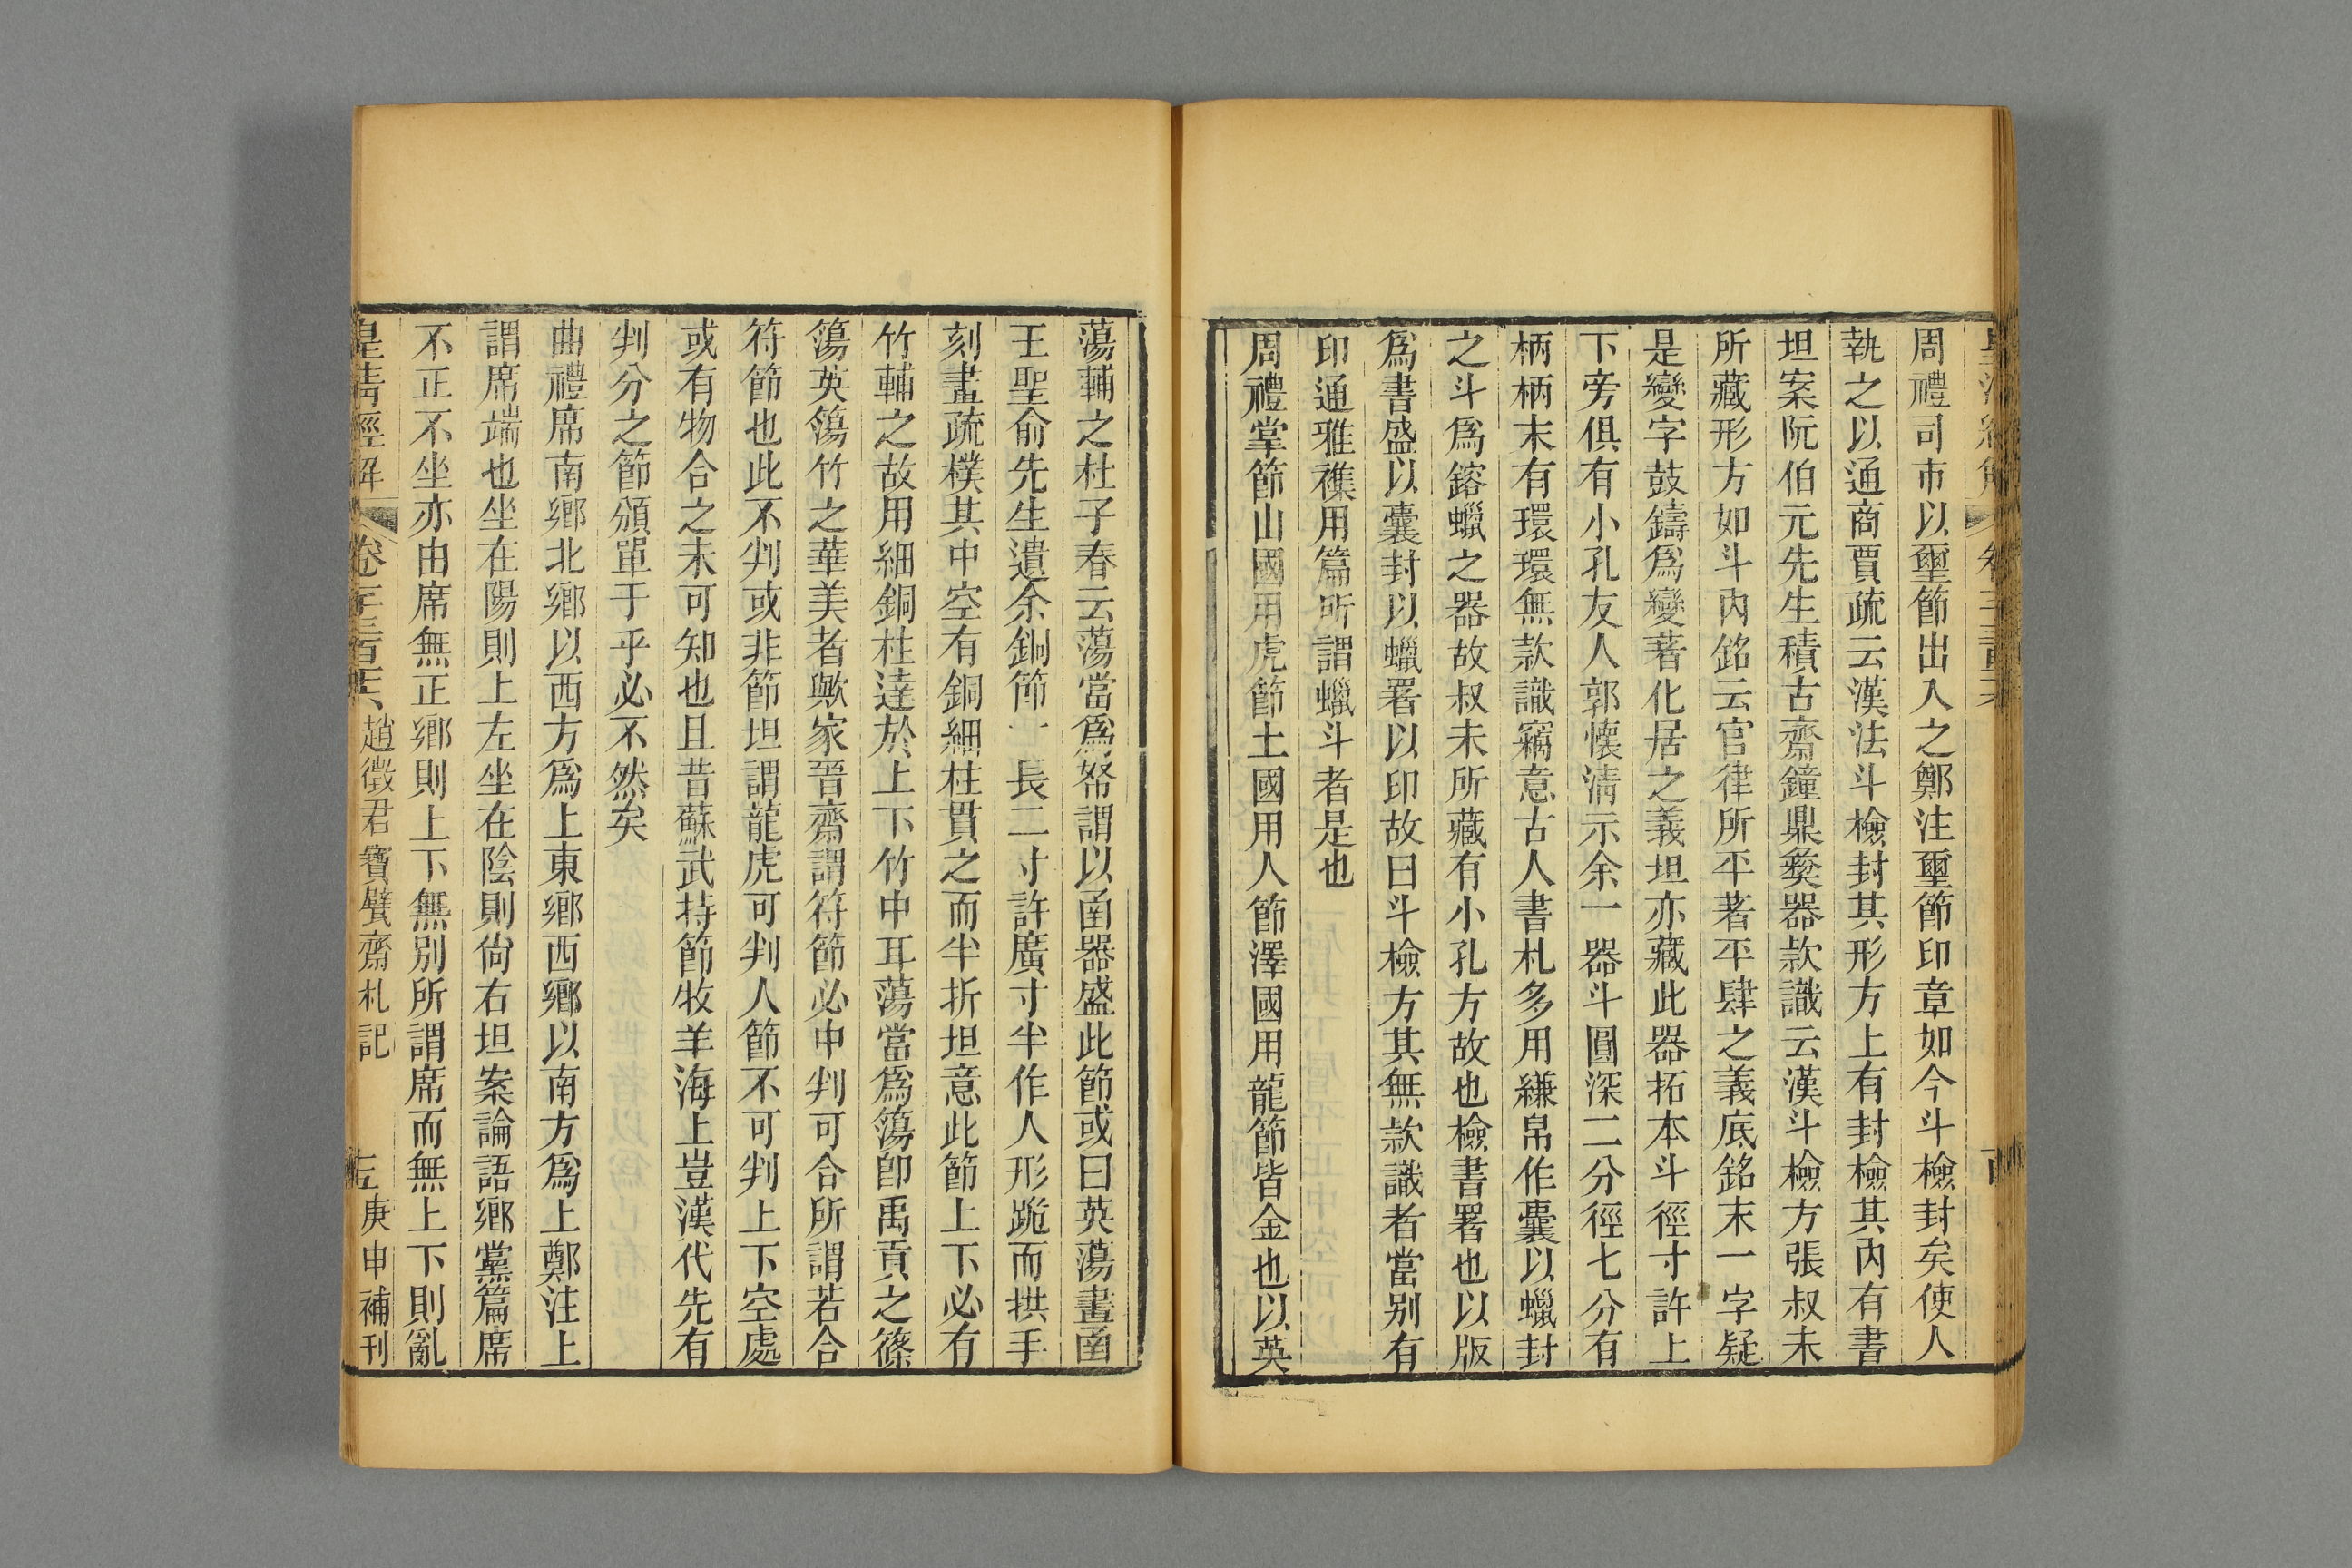 周禮司市以璽節出入之鄭注璽節印章如今斗檢封矣使人
執之以通商賈疏云漢法斗檢封其形方上有封檢其內有書
坦案阮伯元先生積古齋鐘鼎彝器款識云漢斗檢方張叔未
所藏形方如斗內銘云官律所平著平肆之義底銘末一字疑
是變字鼓鑄爲變著化居之義坦亦藏此器拓本斗徑寸許上
下旁俱有小孔友人郭懷清示余一器斗圓深二分徑七分有
柄柄末有環環無款識竊意古人書札多用縑帛作囊以蠟封
之斗爲鎔蠟之器故叔未所藏有小孔方故也檢書署也以版
爲書盛以囊封以蠟署以印故曰斗檢方其無款識者當别有
印通雅襍用篇所謂蠟斗者是也
周禮掌節山國用虎節土國用人節澤國用龍節皆金也以英
蕩輔之杜子春云蕩當爲帑謂以函器盛此節或曰英蕩畫函
王聖俞先生遺余銅節一長二寸許廣寸半作人形跪而拱手
刻畫疏樸其中空有銅細柱貫之而半折坦意此節上下必有
竹輔之故用細銅柱達於上下竹中耳蕩當爲簜卽禹貢之篠
簜英簜竹之華美者歟家晉齋謂符節必中判可合所謂若合
符節也此不判或非節坦謂龍虎可判人節不可判上下空處
或有物合之未可知也且昔蘇武持節牧羊海上豈漢代先有
判分之節頒單于乎必不然矣
曲禮席南鄉北鄉以西方爲上東鄉西鄉以南方爲上鄭注上
謂席端也坐在陽則上左坐在陰則尙右坦案論語鄉黨篇席
不正不坐亦由席無正鄉則上下無别所謂席而無上下則亂
皇清經解 卷一千三百十六 趙徵君寶甓齋札記 庚申補刊